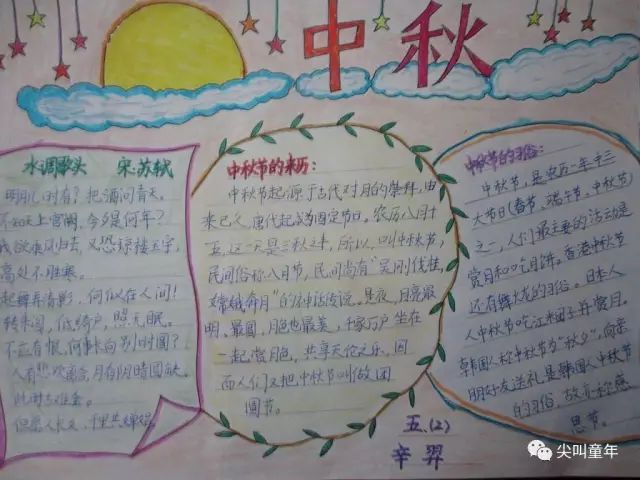 中秋
水调歌头 宋·苏轼
明月几时有？把酒问青天。
不知天上宫阙，今夕是何年？
我欲乘风归去，又恐琼楼玉宇，
高处不胜寒。
起舞弄清影，何似在人间！
转朱阁，低绮户，照无眠。
不应有恨，何事长向别时圆？
人有悲欢离合，月有阴晴圆缺，
此事古难全。
但愿人长久，千里共婵娟。
中秋节的来历：
中秋节起源于古代对月的崇拜，由
来已久，唐代起成为固定节日。农历八月十
五，这一天是三秋之半，所以，叫中秋节，
民间俗称八月节，民间尚有“吴刚伐桂，
嫦娥奔月”的神话传说。是夜，月亮最
明、最圆，月色也最美，千家万户坐在
一起赏月色，共享天伦之乐，因
而人们又把中秋节叫做团
圆节。
中秋节的习俗：
中秋节，是农历一年中三
大节日（春节、端午节、中秋节）
之一，人们最主要的活动是
赏月和吃月饼。香港中秋节
还有舞火龙的习俗。日本人
人中秋节吃江米团子并赏月。
韩国人称中秋节为“秋夕”，向亲
朋好友送礼是韩国人中秋节
的习俗，故亦称感
恩节。
五、(2)
辛羿
尖叫童年